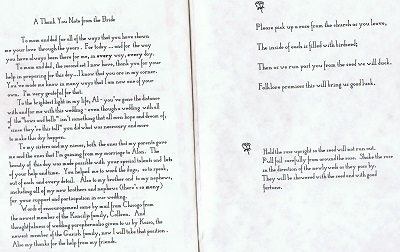 A Thank You Note from the Bride
To mom and dad for all of the ways that you have shown
me your love through the years. For today ... and for the way
you have always been there for me, in every way, every day.
To mom and dad, the second set I now have, thank you for your
help in preparing for this day...I know that you are in my corner.
You've made me know in many ways that I am now one of your
own. I'm very grateful for that.
To the brightest light in my life, Al - you've gone the distance
with and for me with this wedding - even though a wedding with all
of the "bows and bells" isn't something that all men hope and dream of,
"since they're this tall" you did what was necessary and more
to make this day happen.
To my sisters and my nieces, both the ones that my parents gave
me and the ones that I'm gaining from my marriage to Alan. The
beauty of this day was made possible with your special talents and lots
of your help and time. You helped me to work the bugs, so to speak,
out of each and every detail. Also to my brother and to my nephews,
including all of my new brothers and nephews (there's so many)
for your support and participation in our wedding.
Words of encouragement came by mail from Chicago from
the newest member of the family, Colleen. And
thoughtfulness of wedding paraphernalia given to us by Karen, the
newest member of the Gursich family, now I will take that position.
Also my thanks for the help from my friends.
Please pick up a rose from the church as you leave,
The inside of each is filled with birdseed;
Then as we run past you from the seed we will duck.
Folklore promises this will bring us good luck.
Hold the rose upright so the seed will not run out.
Pull foil carefully from around the stem. Shake the rose
in the direction of the newlyweds as they pass by.
They will be showered with the seed and with good
fortune.